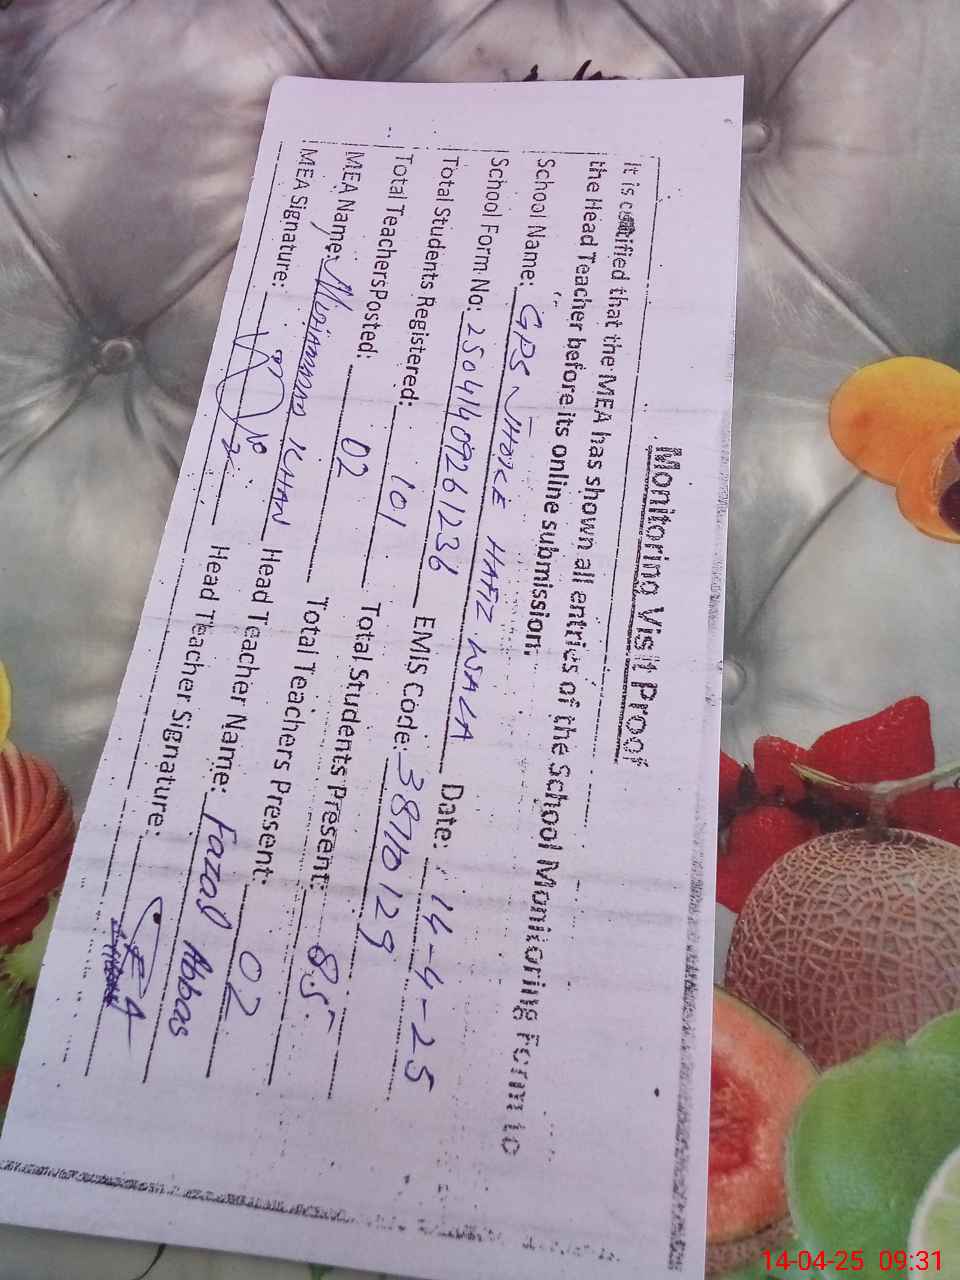 Monitoring Visit Proof
It is certified that the MEA has shown all entries of the School Monitoring Form to
the Head Teacher before its online submission.
School Name: GPS JHOKE HAFIZ WALA Date: 14-4-25
School Form No: 25041409261236 EMIS Code: 38710129
Total Students Registered: 101 Total Students Present: 85
Total Teachers Posted: 02 Total Teachers Present: 02
MEA Name: Muhammad KHAN Head Teacher Name: Fazal Abbas
MEA Signature: Head Teacher Signature:
14-04-25 09:31